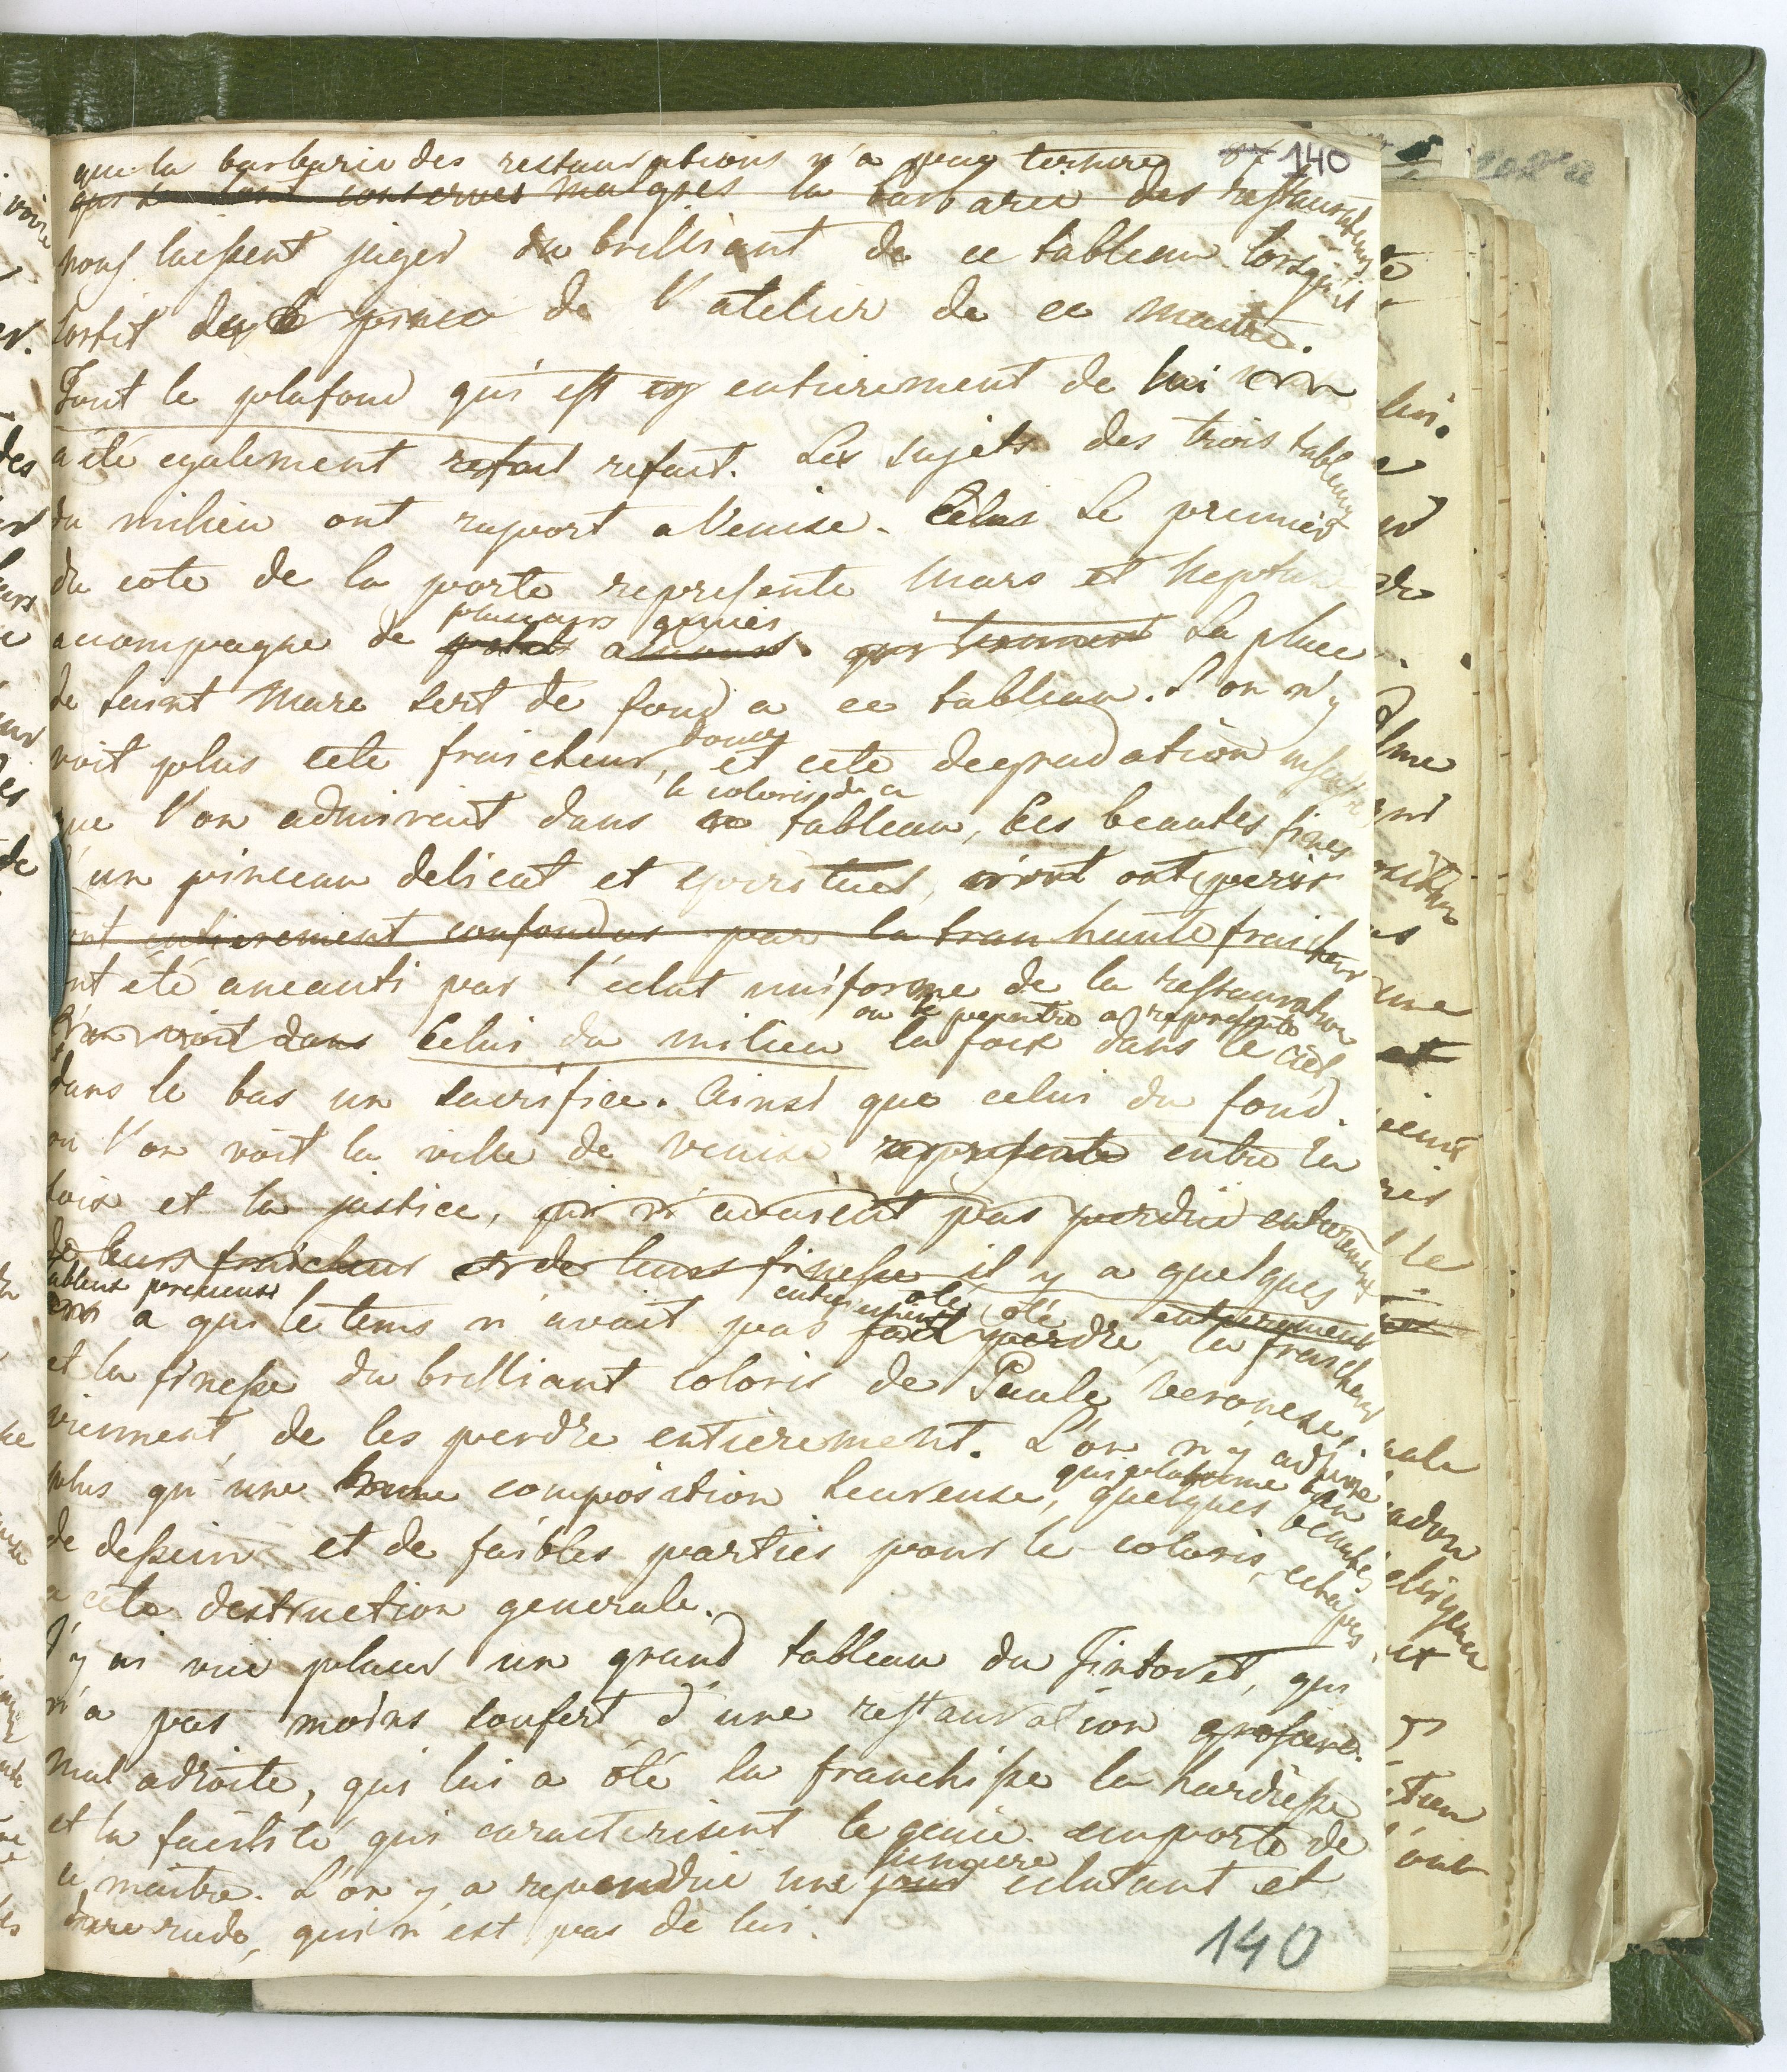 140
que la barbarie des restaurations n'a peu ternire
qui se sont conserves malgres la barbarie des restaurations
nous laissent juger du brilliant de ce tableau lorsqu'il
sortit de l'atelier de ce maitre.
Tout le plafond qui est entierement de lui
a été egalement refait refait. Les sujets des trois tableaux
du milieu ont raport a Venise. Celui Le premier
du cote de la porte represente Mars et Neptune
plusieurs genies
acompagne de petits amours. qui tiennent La place
de saint Marc sert de fond a ce tableau. L'on n'y
douce
voit plus cete fraicheur, et cete degradation
le coloris de ce
que l'on admiroit dans ce tableau, Ces beautes fines
d'un pinceau delicat et spirituel, ont peris
ont entierement confondus par la tranchante fraicheur
ont été aneanti par l'eclat uniforme de la restauration
ou le peintre a represente
L'on voit dans Celui du milieu la foix dans le ciel
dans le bas un sacrifice. Ainsi que celui du fond.
ou l'on voit la ville de venise represente entre la
loix et la justice, qui n'avaient pas perdu entierement
de leurs fraicheur et de leurs finesse il y a quelques
tableux precieuse
entierement oté
a qui le tems n'avait pas fait perdre oté entierement la fraicheur
et la finesse du brilliant coloris de Paule Veronese,
viennent, de les perdre entierement. L'on n'y admire
qui plafonne bien
plus qu'une bonne composition heureuse, quelques beautés
de dessein et de faibles parties pour le coloris, echapes
a cete destruction generale.
J'y ai vue placer un grand tableau du Tintoret, qui
n'a pas moins soufert d'une restauration
mal adroite, qui lui a oté la franchise la hardiesse
et la facilité qui caracterisent le genie emporté de
ce maitre. L'on y a rependue une eclatant et
rude, qui n'est pas de lui.
140